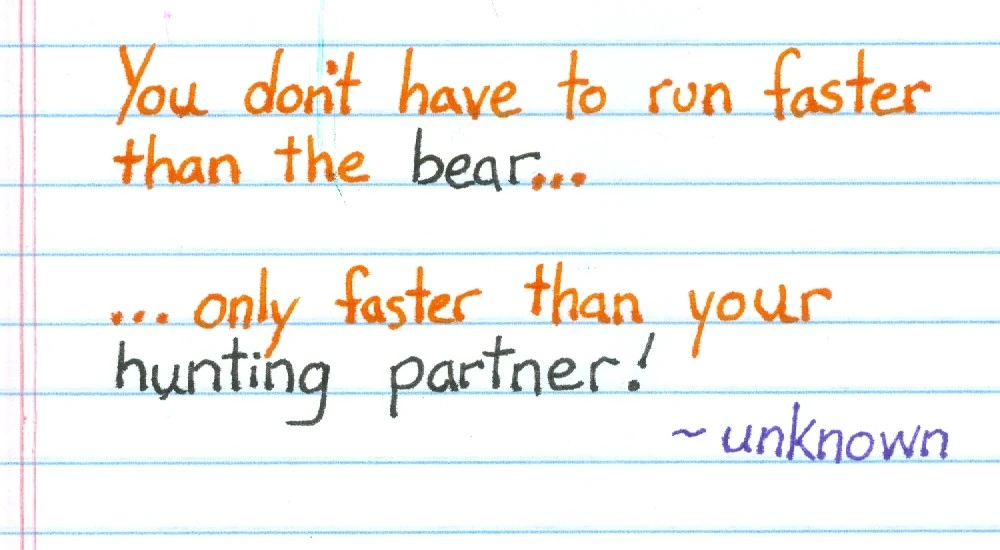 You don't have to run faster
than the bear...
... only faster than your
hunting partner!
~unknown